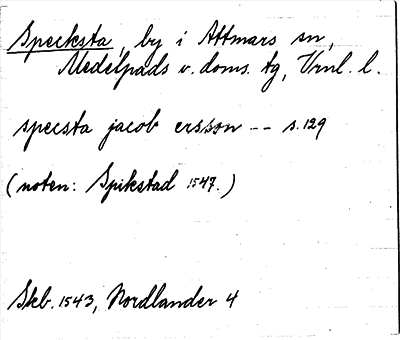 Specksta, by i Attmars sn,
Medelpads v. doms. tg, Vrnl. l.
specsta jacob ersson -- s. 129
(noten: Spikstad 1547.)
Skb. 1543, Nordlander 4